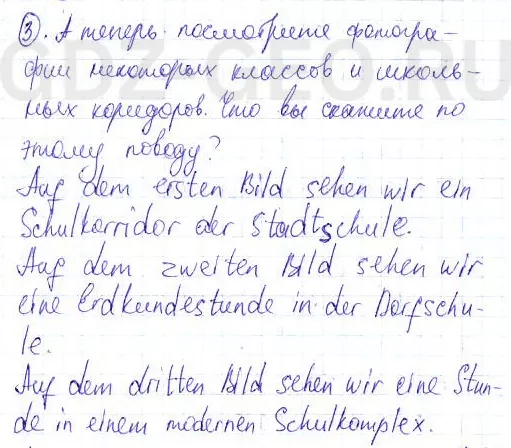 ③. А теперь посмотрите фотогра-
фии некоторых классов и школь-
ных коридоров. Что вы скажите по
этому поводу?
Auf dem ersten Bild sehen wir ein
Schulkorridor der Stadtschule.
Auf dem zweiten Bild sehen wir
eine Erdkundestunde in der Dorfschu-
le.
Auf dem dritten Bild sehen wir eine Stun-
de in einem modernen Schulkomplex.
GDZ-GEO.RU